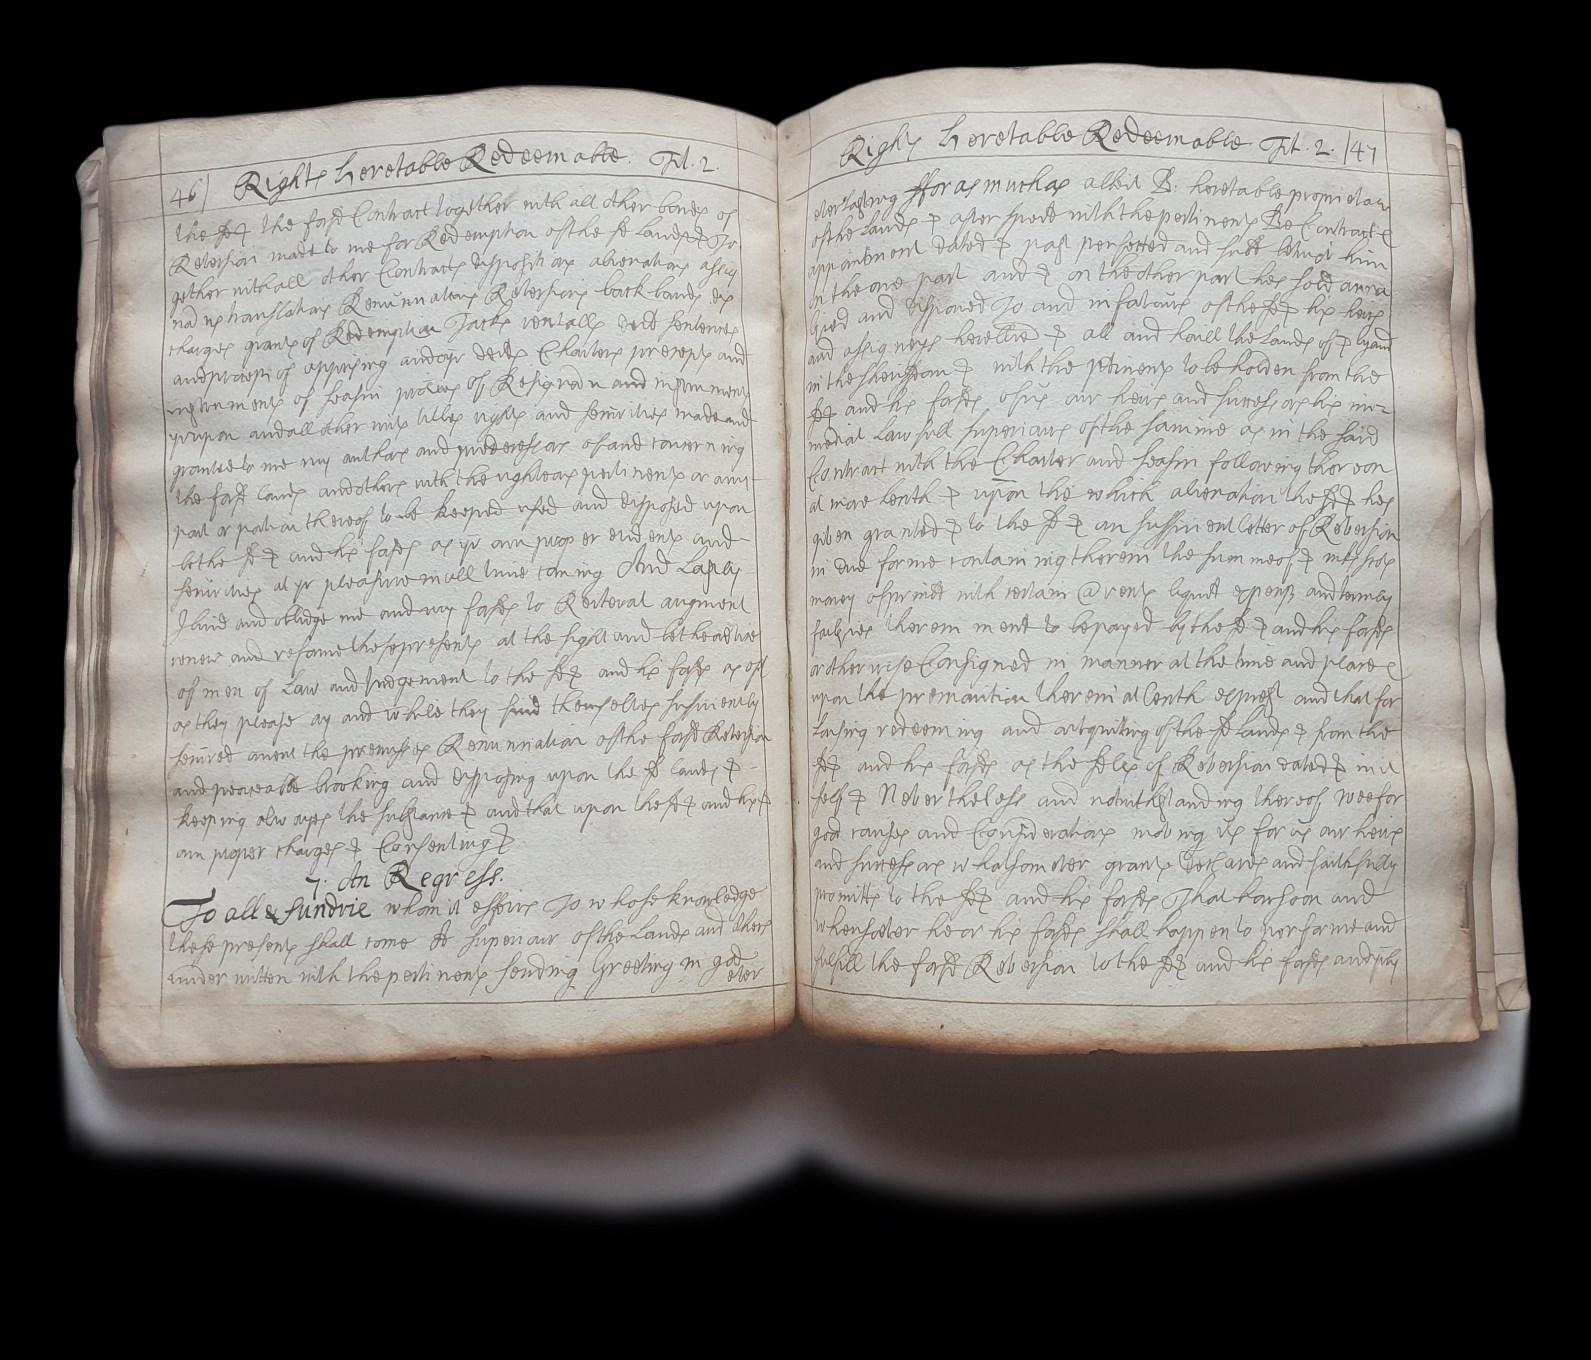 46 Rights heretable Redeemable. Tit. 2.
the sd & the forsd Contract together with all other bands of
Reversion made to me for Redemption of the sd Lands & To
gither with all other Contracts dispositions alienations assig
nations translations Renunciations Reversions back bands
charges grants of Redemption Tacks rentalls decd sentences
and process of apprysing and oyr decds Charters precepts and
instruments of seasin process of Resignaon and instruments
yrupon and all other wits titles rights and securities made and
granted to me my authors and predecessors of and concerning
the forsd lands and others with the pertinents or any
part or portion thereof to be keeped used and disposed upon
be the sd & and his forsds as yr own proper evidents and
securities at yr pleasure in all time coming And Lastly
I bind and oblidge me and my forsds to Reiterat augment
renew and reforme these presents at the sight and be the advice
of men of Law and Judgement to the sd & and his forsds as oft
as they please ay and while they find themselves sufficiently
secured anent the premisses Renunciation of the forsd Reversion
and peaceable brooking and disposing upon the sd lands &
keeping alwayes the substance & and that upon the sd & and his fs
own proper charges & Consenting &
7. An Regress.
To all & sundrie whom it effeirs To whose knowledge
these presents shall come sd superiour of the Lands and others
under written with the pertinents sending Greeting in god
ever
Rights heretable Redeemable Tit. 2. 47
everlasting fforasmuchas albeit B. heretable proprietar
of the Lands & after specd with the pertinents Be Contract &
appointment dated & past perfected and betwixt him
on the one part and & on the other part hes sold anna
lzied and disponed To and in favours of the sd & his heirs
and assigneys heretablie & all and haill the Lands of & lyand
in the sheriffdom & with the ptinents to be holden from the
sd & and his forsds of us our heirs and successors his im
mediat Lawfull superiours of the samme as in the said
Contract with the Charter and seasin following thereon
at more lenth & upon the which alienation the sd & hes
given granted & to the sd & an sufficient letter of Reversion
in due forme containing therein the summe of &
money of prinll with certain @rents liquit expenss and termly
failzies therein ment to be payed by the sd & and his forsds
or otherwise Consigned in manner at the time and place
upon the premonition therein at lenth exprest and that for
Lousing redeeming and outquitting of the sd Lands & from the
sd & and his forsds as the sd lre of Reversion dated & in it
self & Nevertheless and notwithstanding thereof wee for
good causes and Considerations moving us for us our heirs
and successors whatsomever grants and faithfully
promitts to the sd & and his forsds That how soon and
whensoever he or his forsds shall happen to performe and
fulfill the forsd Reversion to the sd & and his forsds and